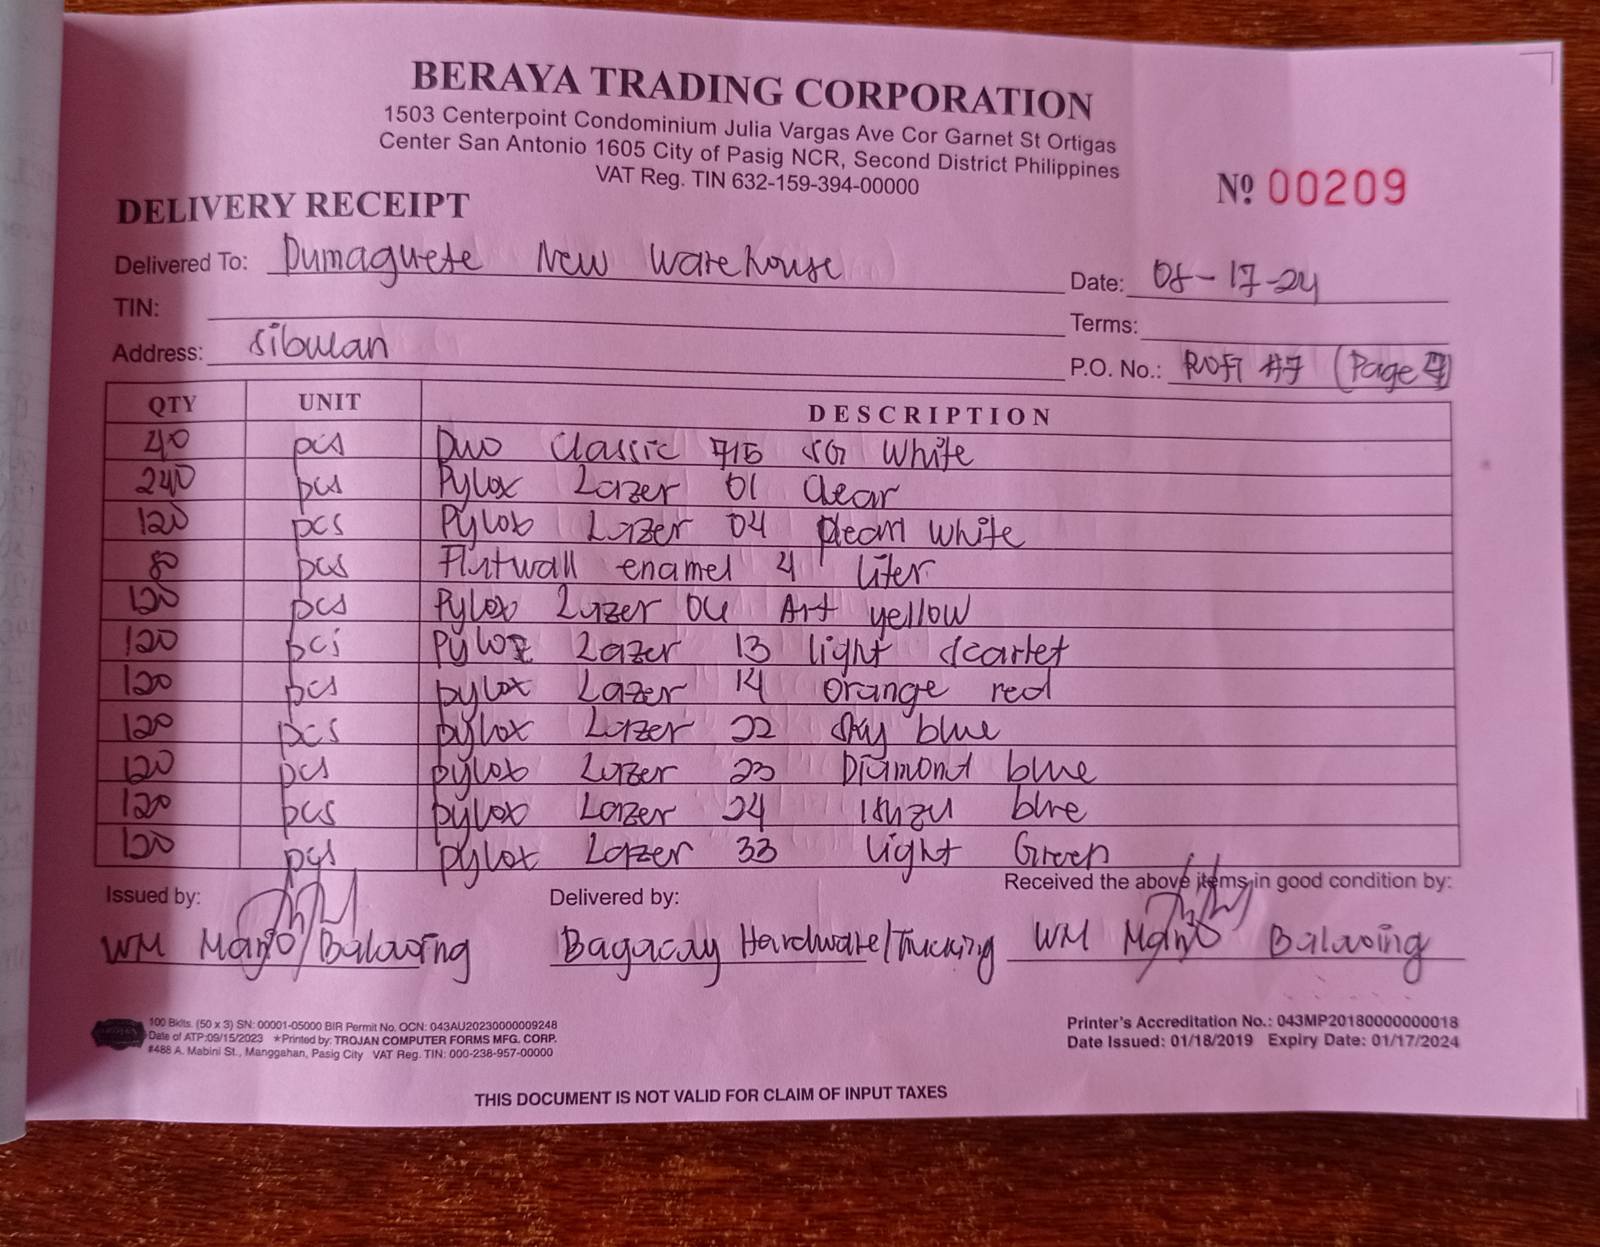 BERAYA TRADING CORPORATION
1503 Centerpoint Condominium Julia Vargas Ave Cor Garnet St Ortigas
Center San Antonio 1605 City of Pasig NCR, Second District Philippines
VAT Reg. TIN 632-159-394-00000
Nº 00209
DELIVERY RECEIPT
Delivered To: Dumaguete New Warehouse
Date: 08-17-24
TIN:
Terms:
Address: Sibulan
P.O. No.: #7 (Page 4)
QTY UNIT DESCRIPTION
40 pcs Duo Classic 715 SG White
240 pcs Pylox Lazer 01 Clear
120 pcs Pylox Lazer 04 pearl White
80 pcs Flatwall enamel 4 liter
120 pcs Pylox Lazer 06 Art yellow
120 pcs Pylox Lazer 13 light scarlet
120 pcs pylox Lazer 14 orange red
120 pcs pylox Lazer 22 sky blue
120 pcs pylox Lazer 23 Diamond blue
120 pcs pylox Lazer 24 Isuzu blue
120 pcs pylox Lazer 33 light Green
Issued by: Delivered by: Received the above items in good condition by:
WM Manjo Balasing Bagacay Hardware/Trucking WM Manjo Balasing
100 Bklts. (50 x 3) SN: 00001-05000 BIR Permit No. OCN: 043AU20230000009248
Date of ATP:09/15/2023 ★Printed by: TROJAN COMPUTER FORMS MFG. CORP.
#488 A. Mabini St., Manggahan, Pasig City VAT Reg. TIN: 000-238-957-00000
Printer's Accreditation No.: 043MP20180000000018
Date Issued: 01/18/2019 Expiry Date: 01/17/2024
THIS DOCUMENT IS NOT VALID FOR CLAIM OF INPUT TAXES